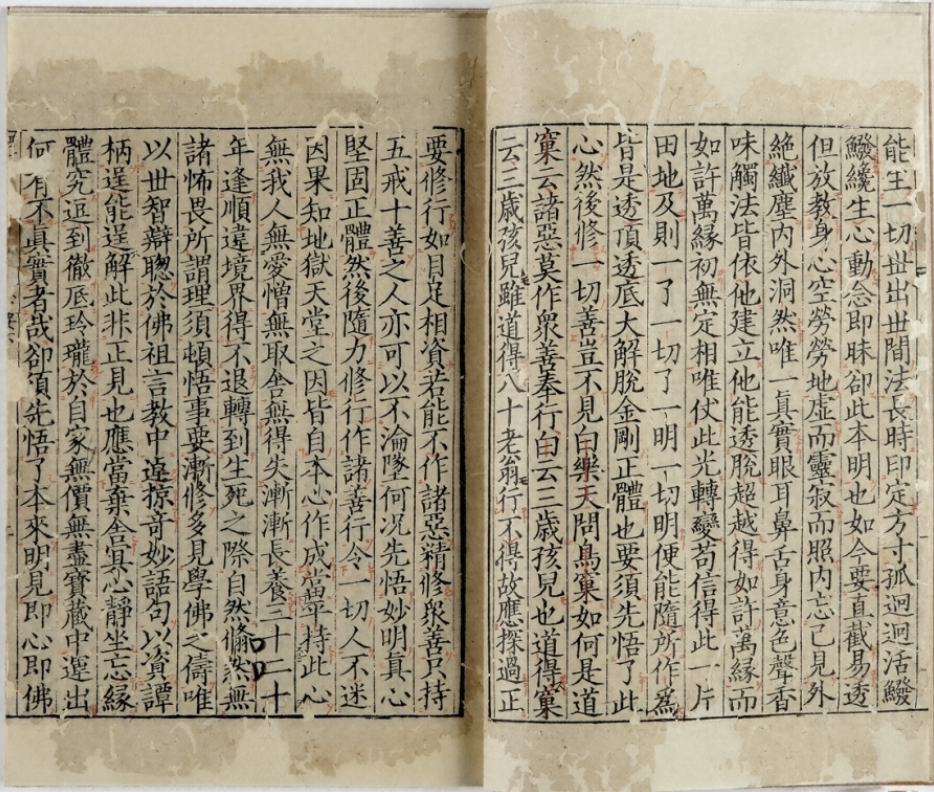 能生一切世出世間法長時印定方寸孤迥迥活鱍
鱍纔生心動念即昧卻此本明也如今要直截易透
但放教身心空勞勞地虛而靈寂而照内忘己見外
絕纖塵内外洞然唯一真實眼耳鼻舌身意色聲香
味觸法皆依他建立他能透脫超越得如許萬緣而
如許萬緣初無定相唯仗此光轉變苟信得此一片
田地及則一了一切了一明一切明便能隨所作為
皆是透頂透底大解脫金剛正體也要須先悟了此
心然後修一切善豈不見白樂天問鳥窠如何是道
窠云諸惡莫作衆善奉行白云三歲孩兒也道得窠
云三歲孩兒雖道得八十老翁行不得故應探過正
要修行如目足相資若能不作諸惡精修衆善只持
五戒十善之人亦可以不淪墜何況先悟妙明真心
堅固正體然後隨力修行作諸善行令一切人不迷
因果知地獄天堂之因皆自本心作成當平持此心
無我人無愛憎無取舍無得失漸漸長養三十二十
年逢順違境界得不退轉到生死之際自然翛然無
諸怖畏所謂理須頓悟事要漸修多見學佛之儔唯
以世智辯聰於佛祖言教中遮掠奇妙語句以資譚
柄逞能逞解此非正見也應當棄舍冥心靜坐忘緣
體究逗到徹底玲瓏於自家無價無盡寶藏中運出
何有不真實者哉卻須先悟了本來明見即心即佛